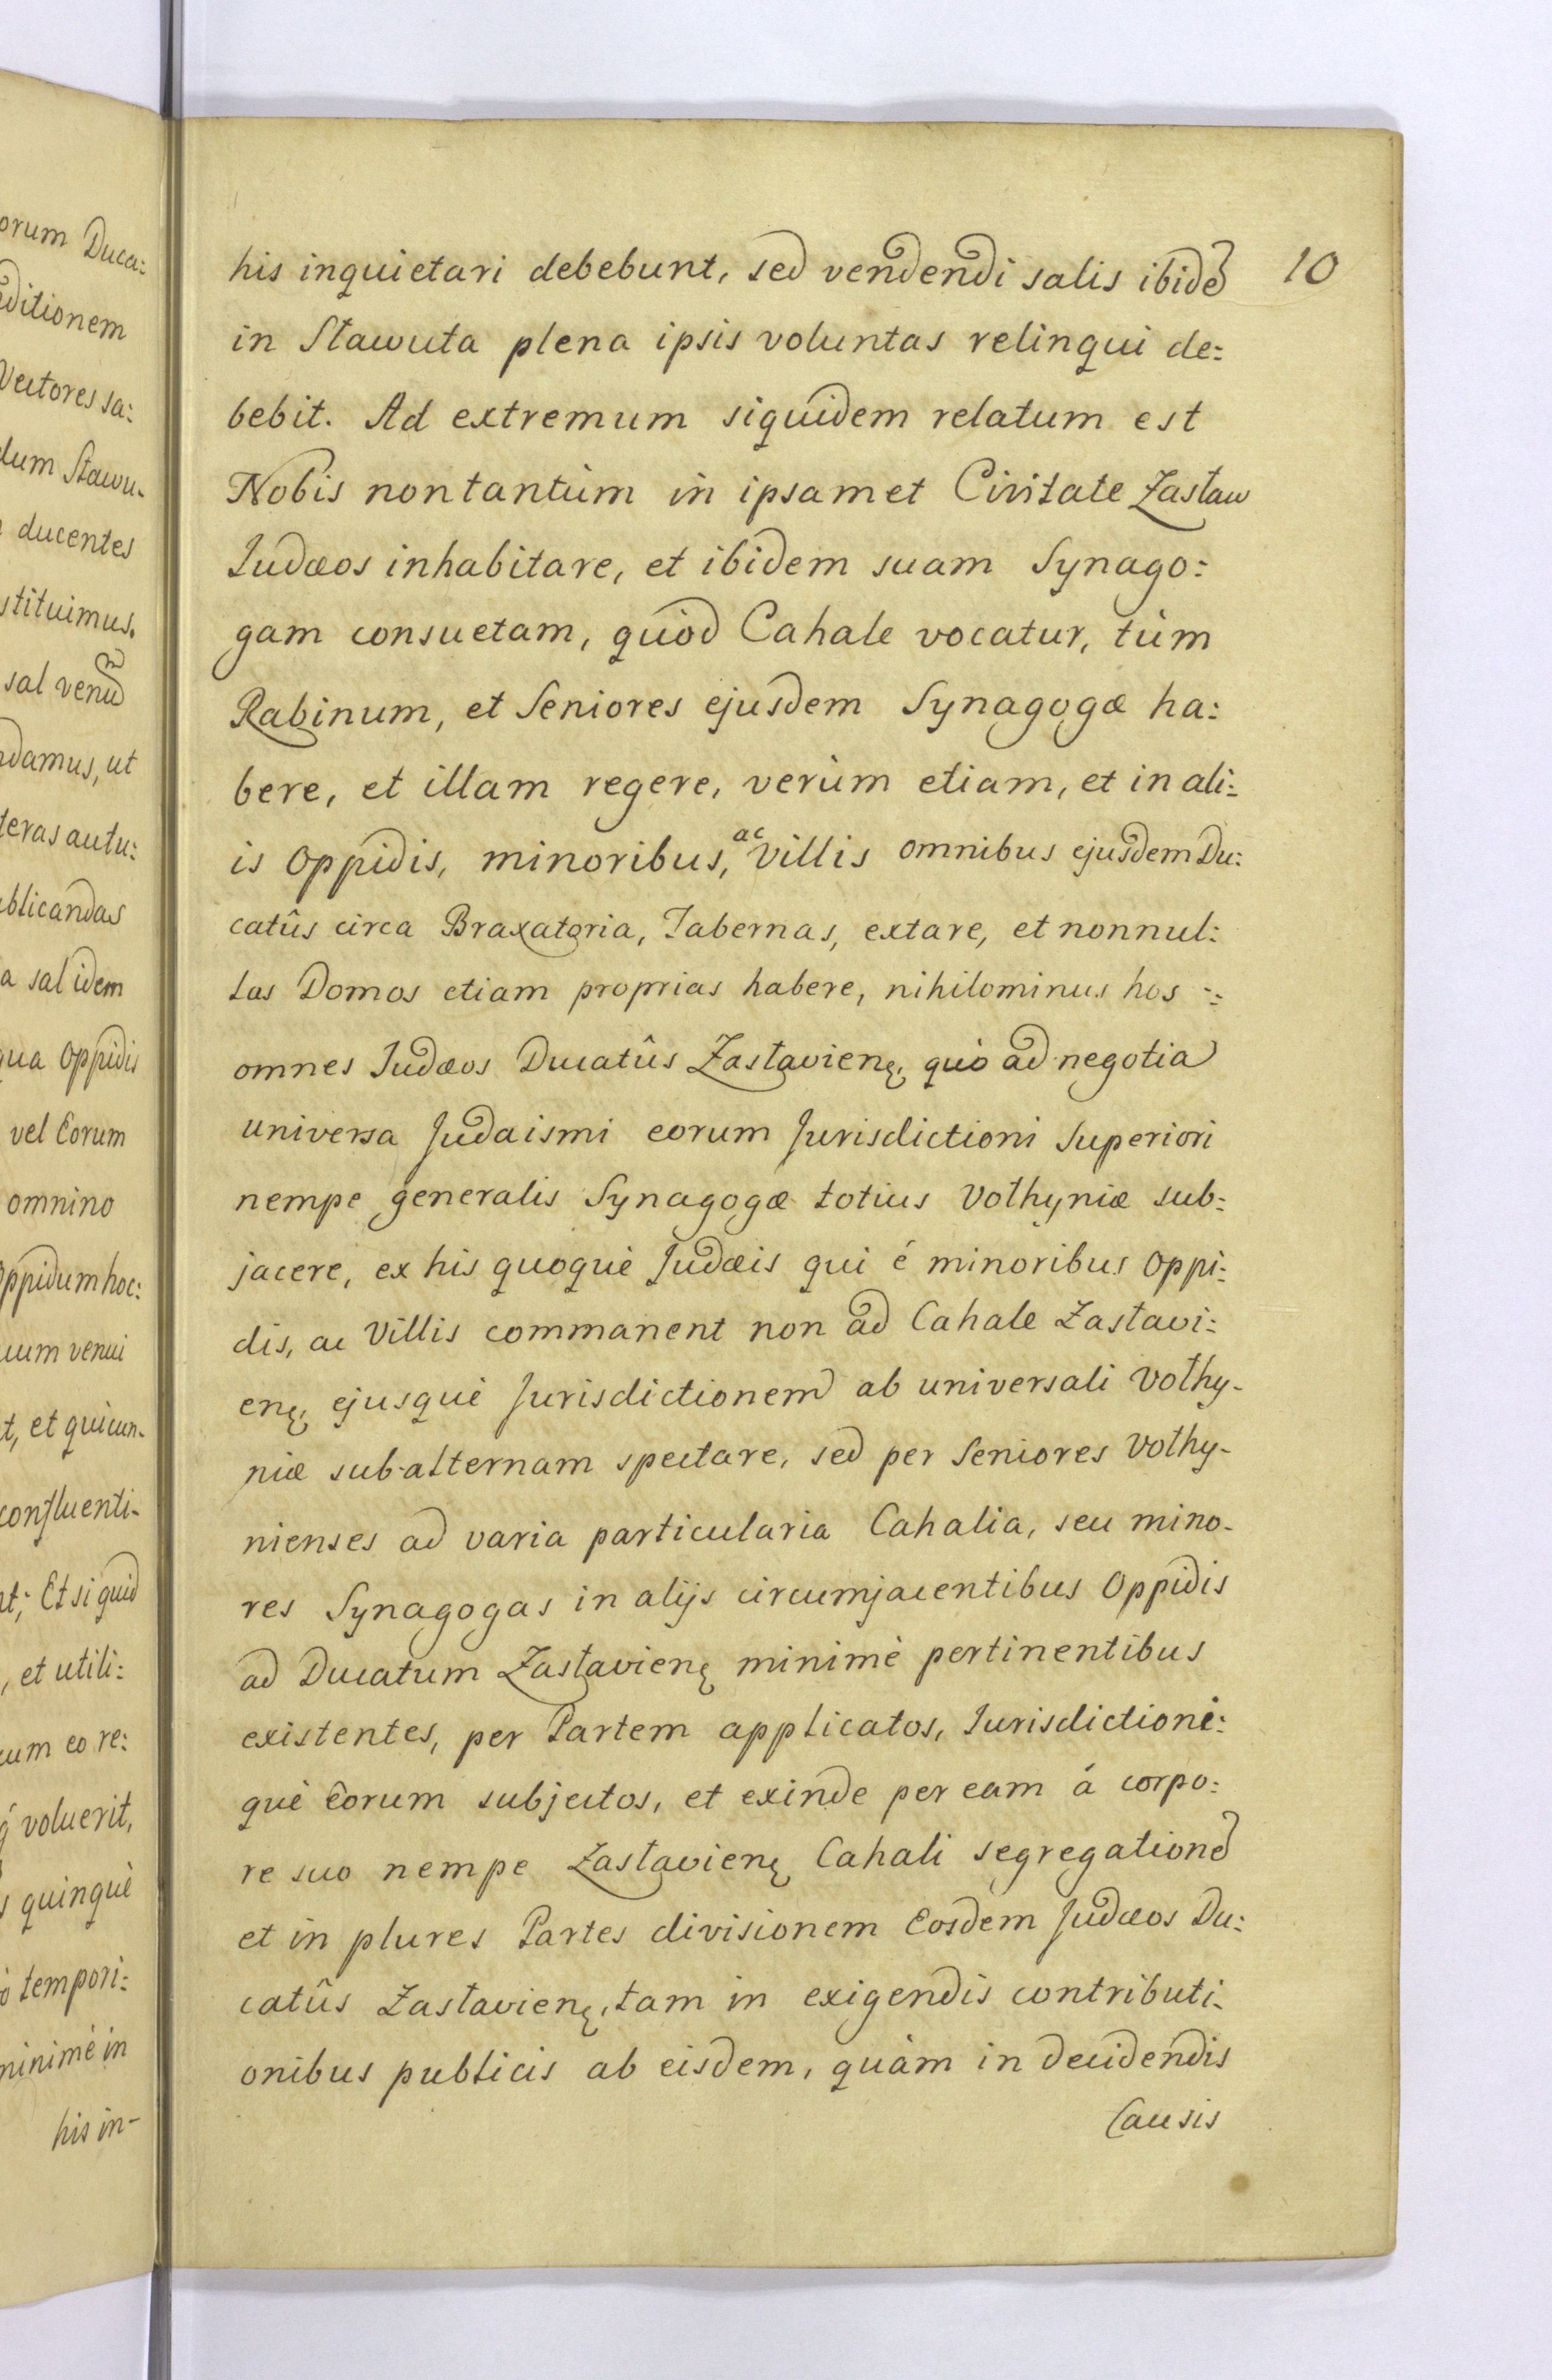 orum Duca:
ditionem
Vectores sa:
dum Stawu-
ducentes
stituimus.
sal venu
ndamus, ut
teras autu:
ublicandas
a sal idem
qua Oppidis
vel Eorum
omnino
Oppidum hoc:
uum venui
t, et quicun-
confluenti-
nt; Et si quid
, et utili:
cum eo re:
voluerit,
s quinquè
ò tempori:
minimè in
his in-
10
his inquietari debebunt, sed vendendi salis ibidē
in Sławuta plena ipsis voluntas relinqui de:
bebit. Ad extremum siquidem relatum est
Nobis non tantùm in ipsamet Civitate Zasław
Iudæos inhabitare, et ibidem suam Synago:
gam consuetam, quòd Cahale vocatur, tùm
Rabinum, et Seniores ejusdem Synagogæ ha:
bere, et illam regere, verùm etiam, et in ali:
is Oppidis, minoribus, ac Villis omnibus ejusdem Du:
catûs circa Braxatoria, Tabernas, extare, et nonnul:
las Domos etiam proprias habere, nihilominus hos -:
omnes Iudæos Ducatûs Zasłavienę, quò ad negotia
universa Judaismi eorum Jurisdictioni Superiori
nempe generalis Synagogæ totius Vołhyniæ sub:
jacere, ex his quoquè Judæis qui é minoribus Oppi:
dis, ac Villis commanent non ad Cahale Zasłavi:
enę, ejusquè Jurisdictionem ab universali Vołhy-
niæ sub-alternam spectare, sed per Seniores Vołhy-
nienses ad varia particularia Cahalia, seu mino-
res Synagogas in alijs circumjacentibus Oppidis
ad Ducatum Zasłavienę minimè pertinentibus
existentes, per Partem applicatos, Iurisdictioni:
què Eorum subjectos, et exinde per eam á corpo:
re suo nempe Zasłavienę Cahali segregationē
et in plures Partes divisionem Eosdem Judæos Du:
catûs Zasłavienę, tam in exigendis contributi-
onibus publicis ab eisdem, quàm in decidendis
Causis